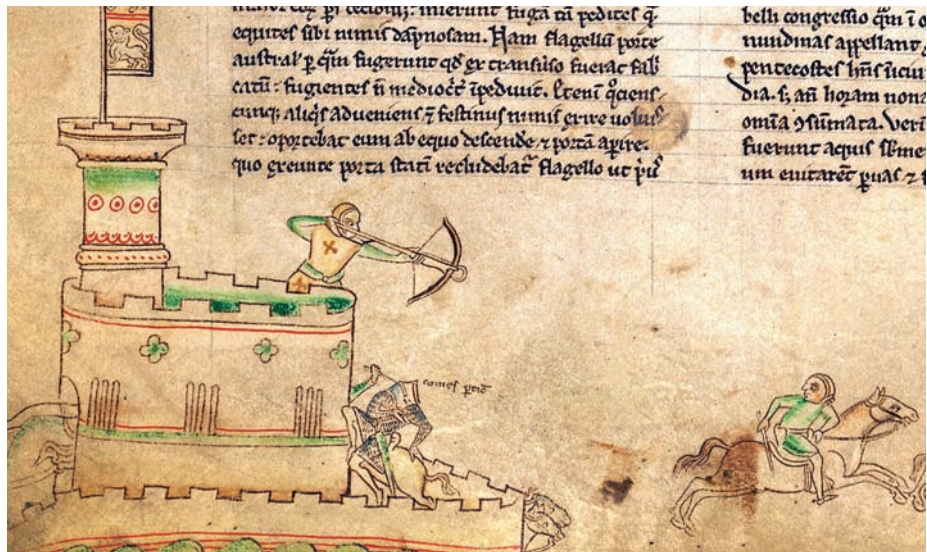 inierunt fugā tā pedites q̄
equites sibi nimis dāpnosam. Nam flagellū porte
austral' ꝑ q̄m fugerunt qd̄ ex transũso fuerat fab
catū: fugientes ñ mediocrit̄ īpediuit. Etenī q̊ciens
cunq; aliq̄s adueniens ⁊ festinus nimis exire uoluis
set: oportebat eum ab equo descend̄e ⁊ portā aꝑire.
quo exeunte porta statī recludebat᷑ flagello ut pͥus
belli congressio q̄m ī o
nundinas appellant
pentecostes hn̄s
dia. s; añ horam nona
omīa ꝯsūmata. Veri
fuerunt aquis sb̄me
um euitarēt ꝑuas ⁊
comes ꝑtic̄